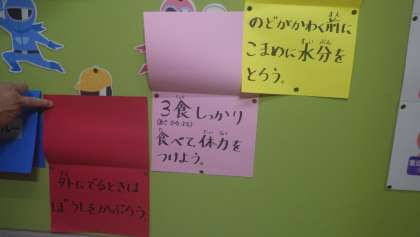 のどがかわく前に
こまめに水分を
とろう。
3食しっかり
(あさ・ひる・よる)
食べて、体力を
つけよう。
外にでるときは
ぼうしをかぶろう。
ルー